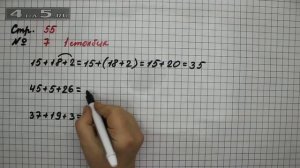 4ГДЗ.RU
Стр. 55
№ 7 1 столбик
15+18+2=15+(18+2)=15+20=35
45+5+26=
37+19+3=